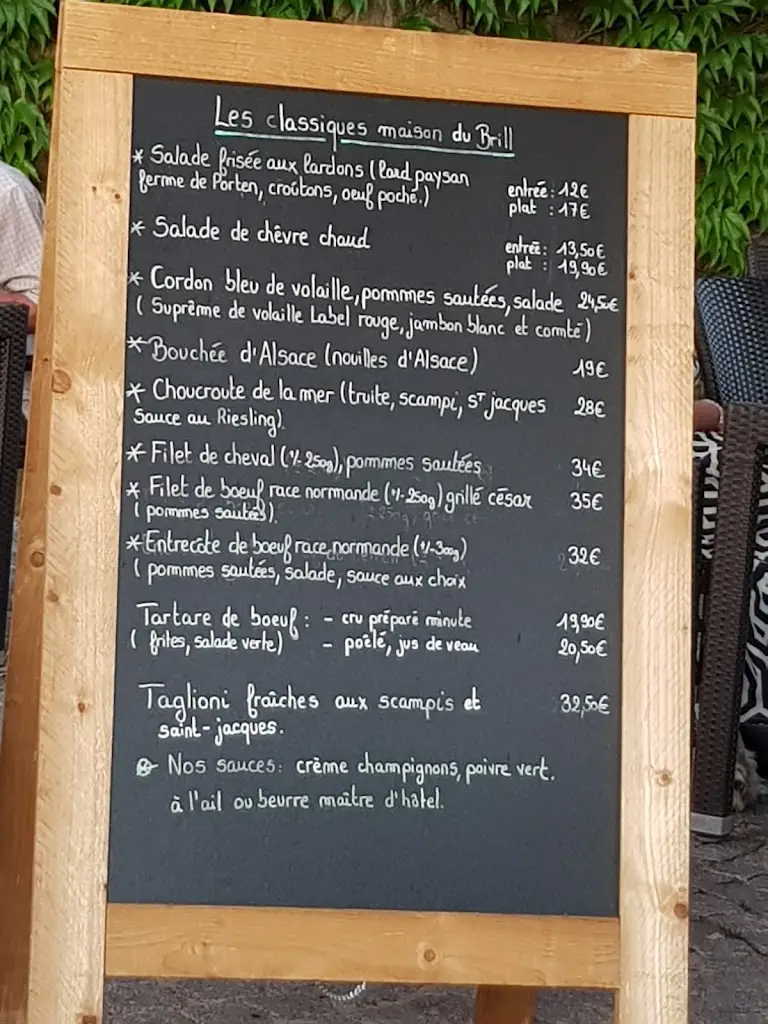 Les classiques maison du Brill
* Salade frisée aux lardons (lard paysan
ferme de Porten, croûtons, oeuf poché.)
entrée : 12€
plat : 17€
* Salade de chêvre chaud
entrée : 13,50€
plat : 19,90€
* Cordon bleu de volaille, pommes sautées, salade 24,50€
( Suprême de volaille Label rouge, jambon blanc et comté)
* Bouchée d'Alsace (nouilles d'Alsace) 19€
* Choucroute de la mer (truite, scampi, ST jacques 28€
Sauce au Riesling).
* Filet de cheval (+/- 250g), pommes sautées 34€
* Filet de boeuf race normande (+/- 250g) grillé césar 35€
( pommes sautées).
* Entrecôte de boeuf race normande (+/- 300g) 32€
( pommes sautées, salade, sauce aux choix
Tartare de boeuf : - cru préparé minute 19,90€
( frites, salade verte) - poêlé, jus de veau 20,50€
Taglioni fraîches aux scampis et 32,50€
saint-jacques.
Nos sauces: crème champignons, poivre vert.
à l'ail ou beurre maître d'hôtel.